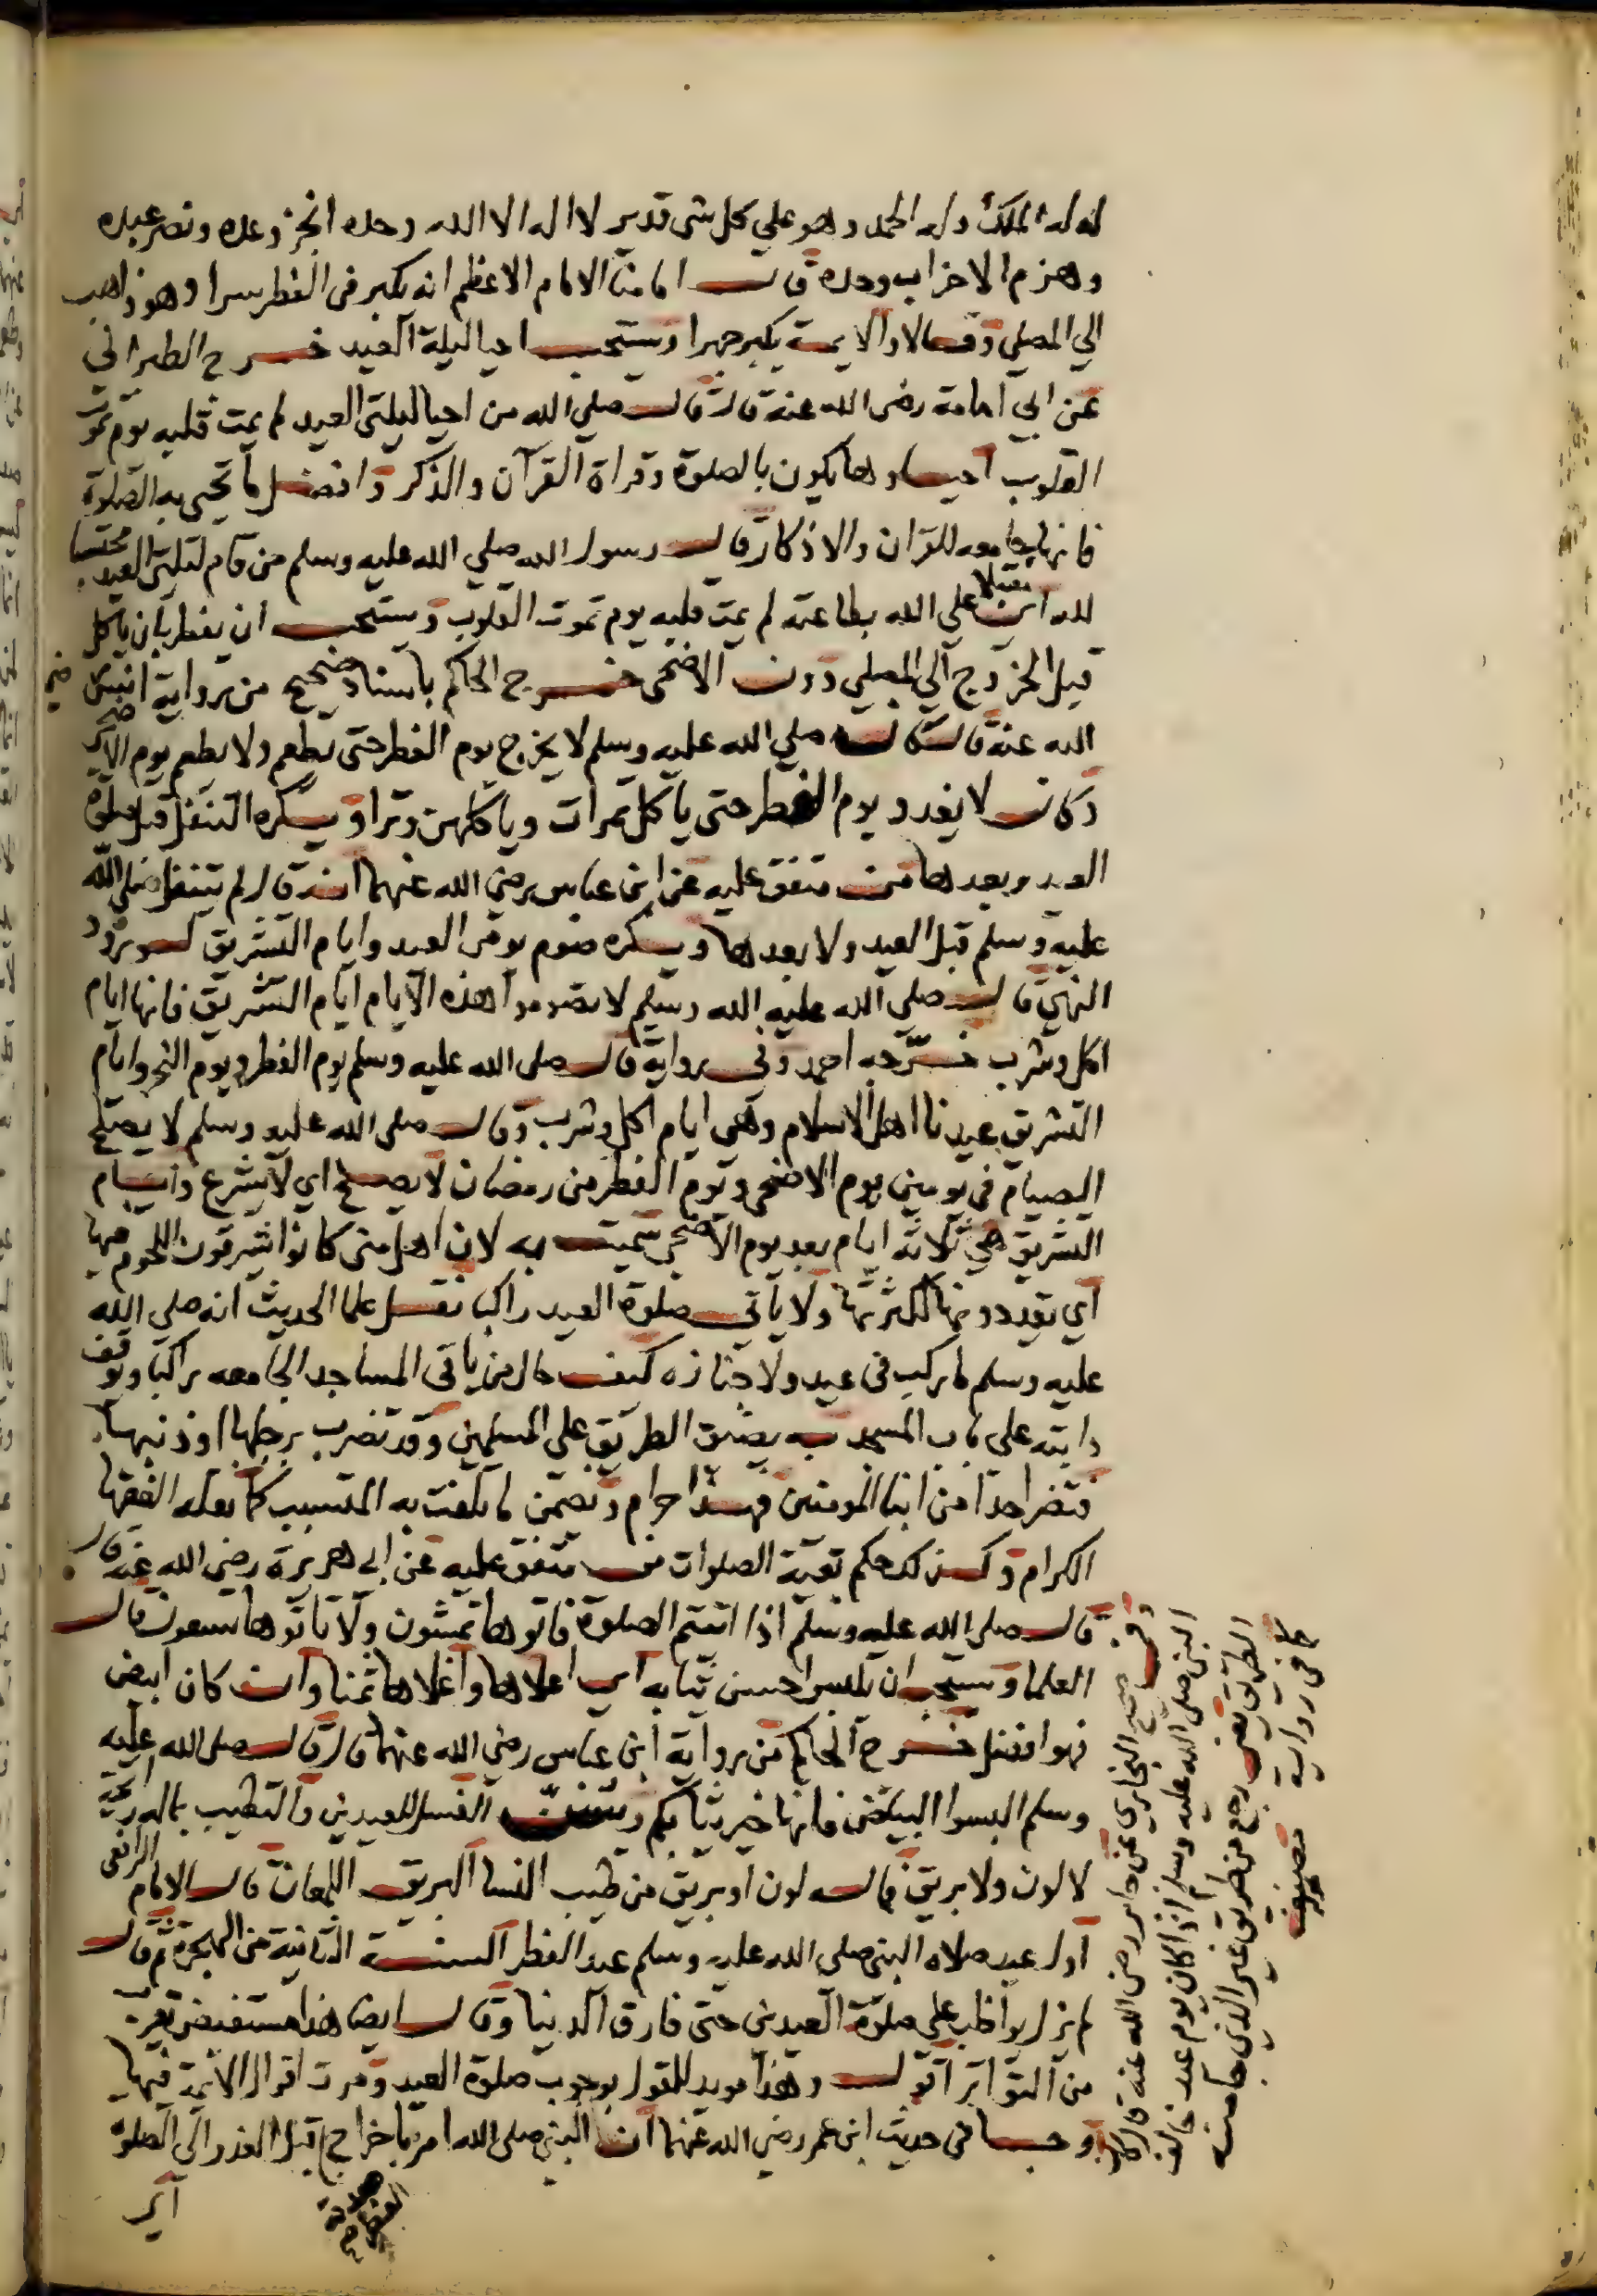 له له الملك وله الحمد وهو علي كل شي قدير لا اله الا الله وحده انجز وعده ونصر عبده
وهزم الاحزاب وحده قال امامنا الامام الاعظم انه يكبر في الفطر سرا وهو ذاهب
الي المصلي وقالا والايمة يكبر جهرا ويستحب احيا ليلة العيد خرج الطبراني
عن ابي امامة رضي الله عنه قال قال صلي الله من احيا ليلتي العيد لم يمت قلبه يوم تموت
القلوب احياوها يكون بالصلوة وقراة القرآن والذكر وافضل ما تحيي به الصلوة
فانها جامعه للقران والاذكار قال رسول الله صلي الله عليه وسلم من قام ليلتي العيد محتسبا
لله اي مقبلا علي الله بطاعته لم يمت قلبه يوم تموت القلوب ويستحب ان يفطر بان ياكل
قبل الخروج الي المصلي دون الاضحي خرج الحاكم باسناد صحيح من رواية انس رضي
الله عنه قال كان صلي الله عليه وسلم لا يخرج يوم الفطر حتى يطعم ولا يطعم يوم الاضحى
وكان لا يغدو يوم الفطر حتى ياكل تمرات وياكلهن وترا ويكره التنفل قبل صلوة
العيد وبعدها متفق عليه عن ابن عباس رضي الله عنهما انه قال لم يتنفل صلي الله
عليه وسلم قبل العيد ولا بعدها ويكره صوم يومي العيد وايام التشريق لورود
النهي قال صلي الله عليه الله وسلم لا تصوموا هذه الايام ايام التشريق فانها ايام
اكل وشرب خرجه احمد وفي رواية قال صلى الله عليه وسلم يوم الفطر ويوم النحر وايام
التشريق عيدنا اهل الاسلام وهي ايام اكل وشرب وقال صلى الله عليه وسلم لا يصلح
الصيام في يومين يوم الاضحى ويوم الفطر من رمضان لا يصلح اي لا يشرع وايام
التشريق هي ثلاثة ايام بعد يوم الاضحى سميت به لان اهل منى كانوا يشرقون اللحوم فيها
اي يقددونها لكثرتها ولا ياتي صلوة العيد راكبا نقل علما الحديث انه صلى الله
عليه وسلم ما ركب في عيد ولا جنازه كيف حال من ياتي المساجد الجامعه راكبا وتوقف
دابته على باب المسجد يضيق الطريق على المسلمين وقد تضرب برجلها او ذنبها
فتضر احدا من ابنا المومنين فهذا حرام وتضمن ما تلفت به المتسبب كما نقله الفقها
الكرام وكذلك حكم بقية الصلوات متفق عليه عن ابي هريرة رضي الله عنه قال
قال صلى الله عليه وسلم اذا اتيتم الصلوة فاتوها تمشون ولا تاتوها تسعون قال
العلما ويستحب ان يلبس احسن ثيابه اي اعلاها واغلاها ثمنا وان كان ابيض
فهو افضل خرج الحاكم من رواية ابن عباس رضي الله عنهما قال قال صلى الله عليه
وسلم البسوا البيض فانها خير ثيابكم ويسن الغسل للعيدين والتطيب بما له رايحة
لا لون ولا بريق فما له لون او بريق من طيب النسا البريق اللمعان قال الامام الرافعي
اول عيد صلاه النبي صلى الله عليه وسلم عيد الفطر السنة الثانية من الهجرة ثم قال
لم يزل يواظب على صلوة العيدين حتى فارق الدنيا وقال ايضا هذا مستفيض يقرب
من التواتر اقول وهذا مويد للقول بوجوب صلوة العيد ومرت اقوال الايمة فيها
وجا في حديث ابن عمر رضي الله عنهما ان النبي صلى الله امر باخراج قبل الغدو الى الصلوة
صدقة الفطر
اي
وفي صحيح البخاري عن جابر رضي الله عنه قال كان
النبي صلى الله عليه وسلم اذا كان يوم عيد خالف
الطريق يعني رجع من طريق غير الذي جا منه
كما في رواية